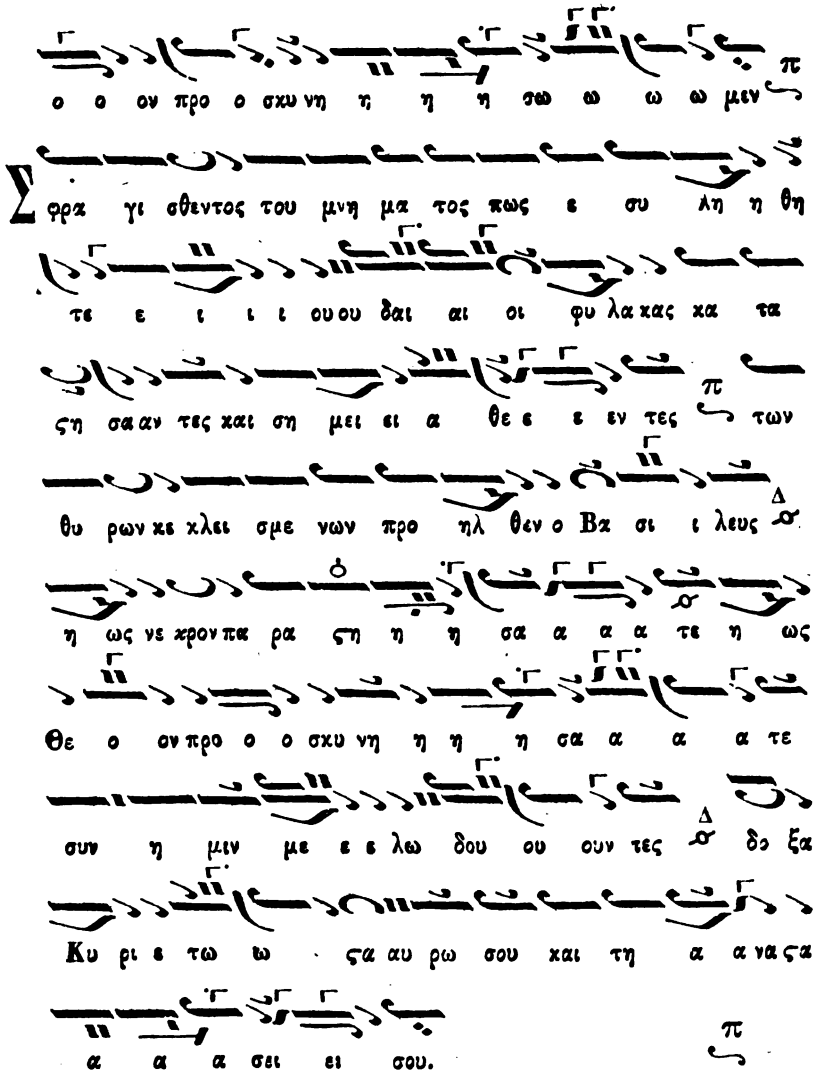 ο ο ον προ ο σκυ νη η η η σω ω ω ω μεν π
Σ φρα γι σθεντος του μνη μα τος πως ε συ λη η θη
τε ε ι ι ι ου ου δαι αι οι φυ λα κας κα τα
ϛη σα αν τες και ση μει ει α θε ε ε εν τες π των
θυ ρων κε κλει σμε νων προ ηλ θεν ο Βα σι ι λευς Δ
η ως νε κρον πα ρα ϛη η η σα α α α τε η ως
Θε ο ον προ ο ο σκυ νη η η η σα α α α τε
συν η μιν με ε ε λω δου ου ουν τες Δ δο ξα
Κυ ρι ε τω ω ϛα αυ ρω σου και τη α α να ϛα
α α α σει ει σου. π